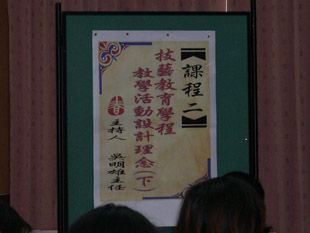 【課程二】
技藝教育學程
教學活動設計理念(下)
春
主持人 吳明雄主任